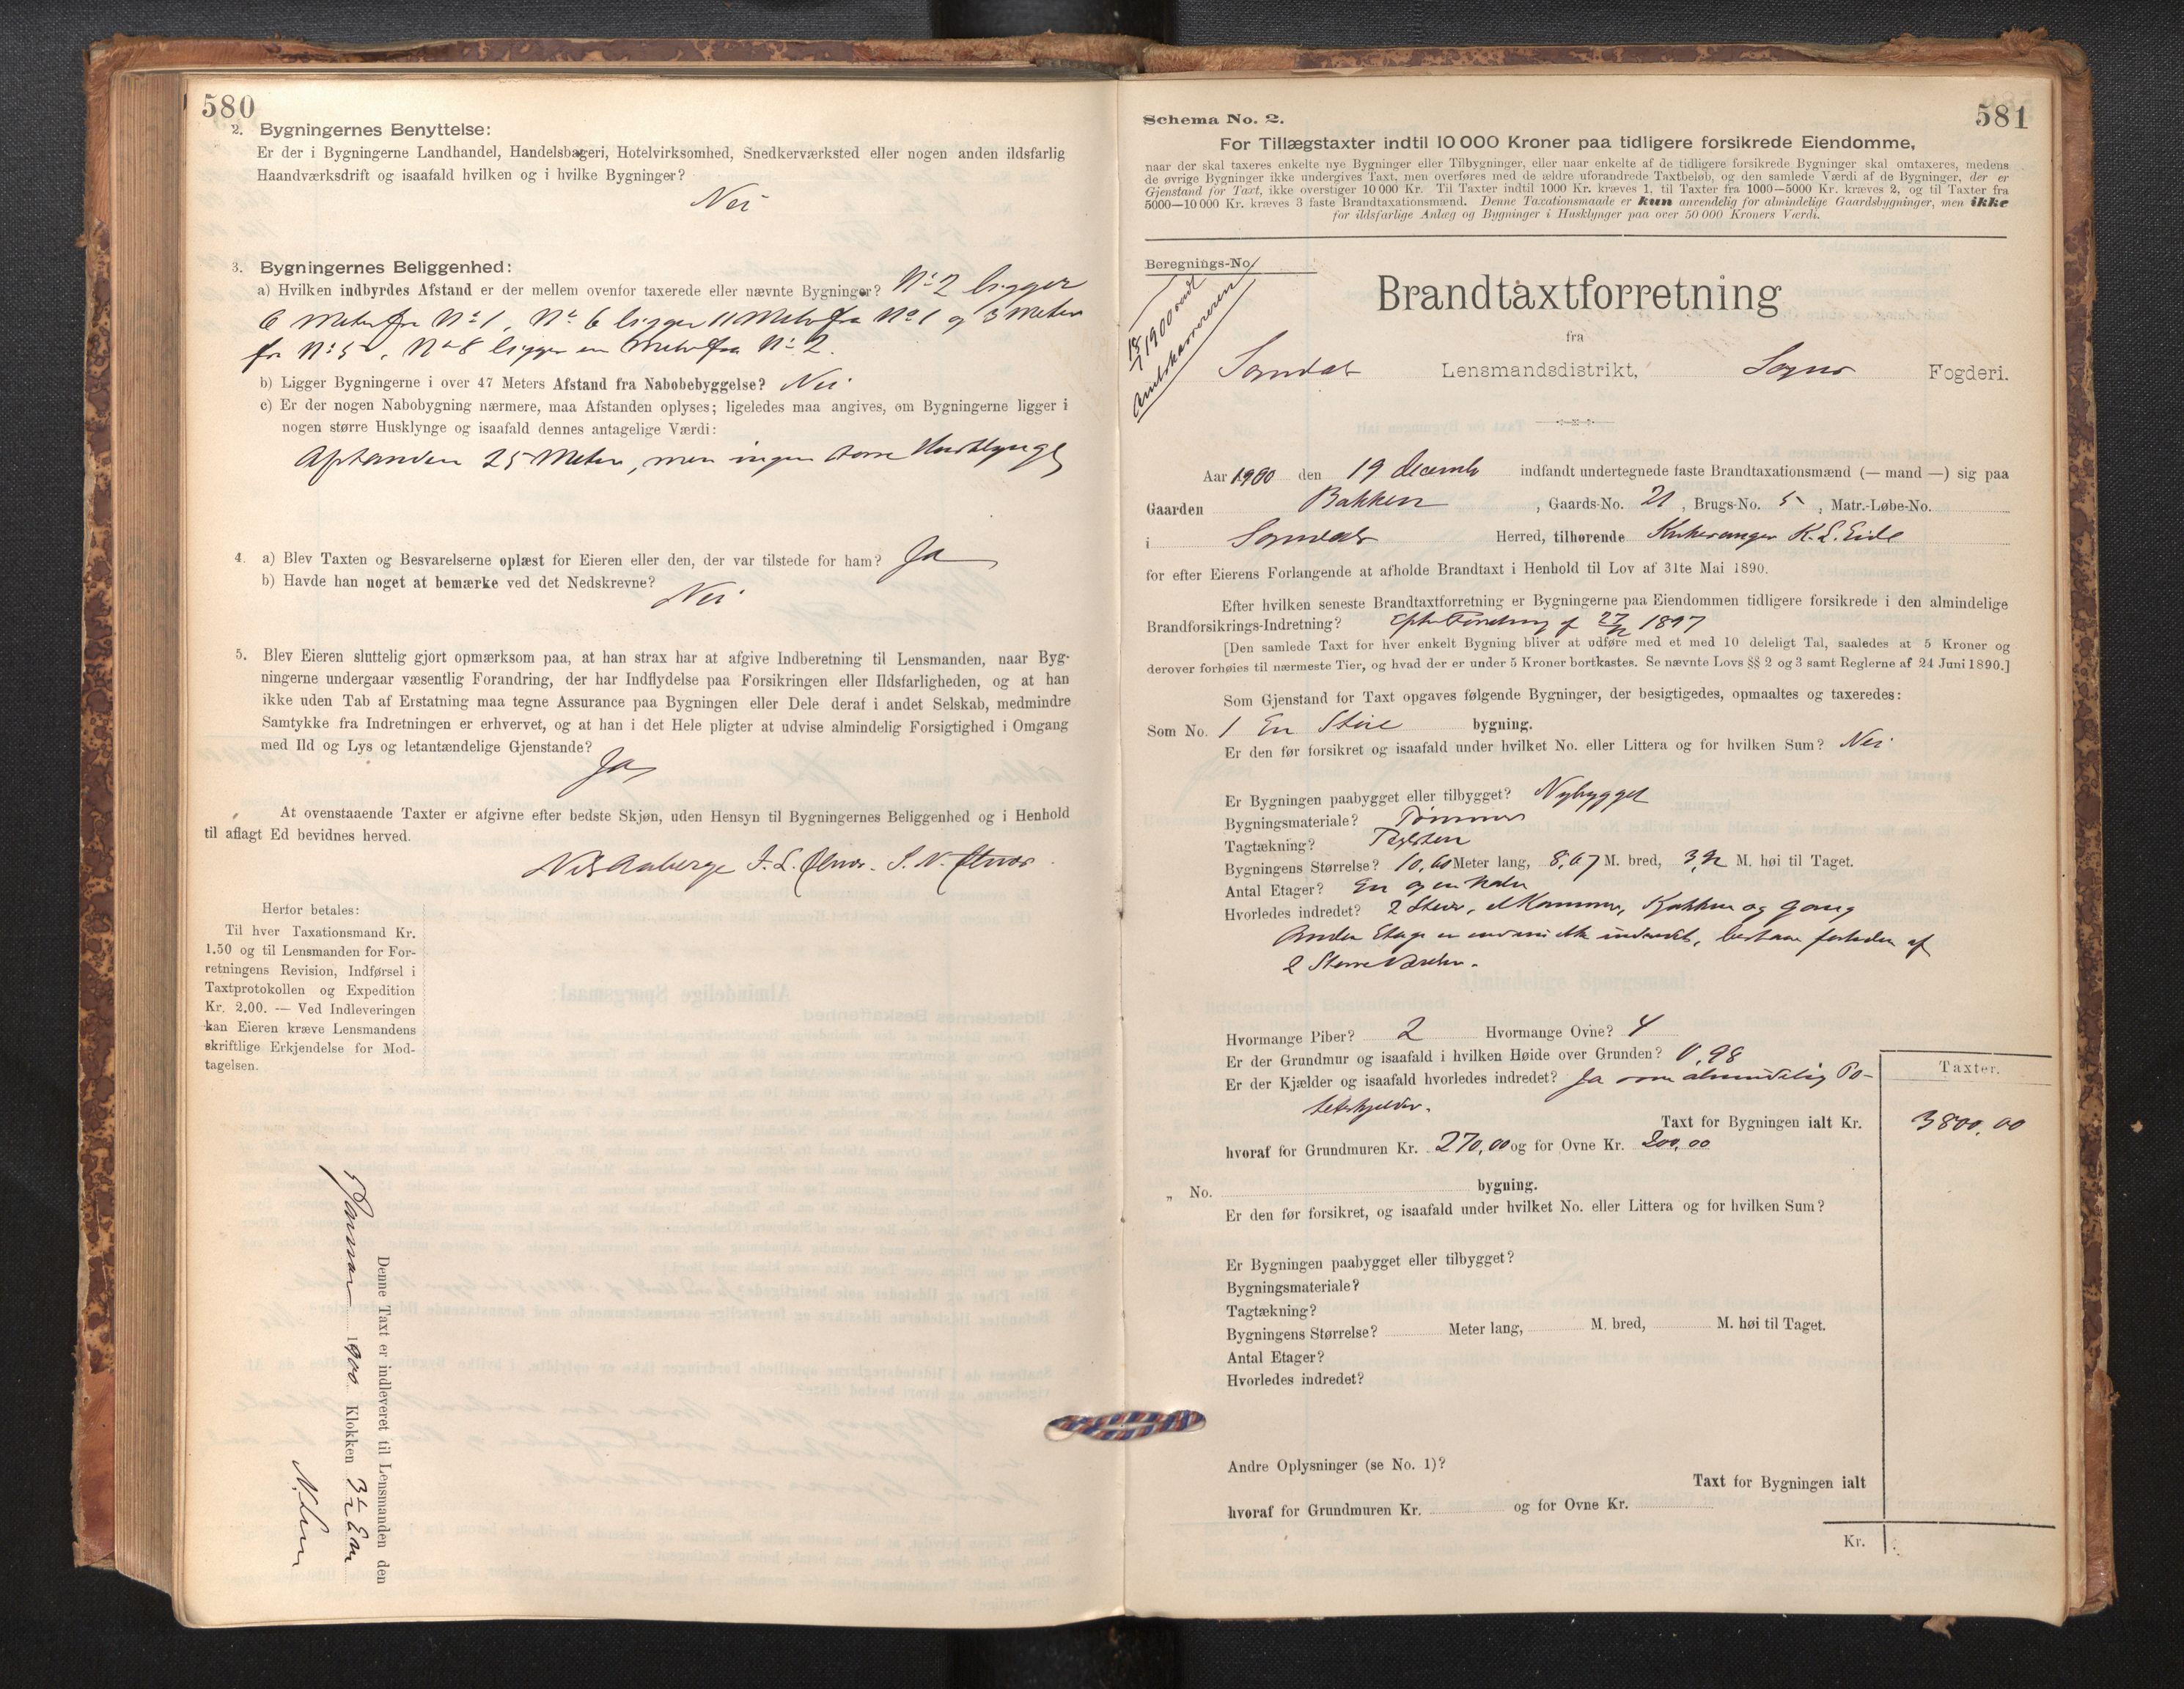 580
2. Bygningernes Benyttelse:
Er der i Bygningerne Landhandel, Handelsbageri, Hotelvirksomhed, Snedkerværksted eller nogen anden ildsfarlig
Haandværksdrift og isaafald hvilken og i hvilke Bygninger?
Nei
3. Bygningernes Beliggenhed:
a) Hvilken indbyrdes Afstand er der mellem ovenfor taxerede eller nævnte Bygninger? No 2 ligger
6 Meter fra No 1, No 6 ligger 11 Meter fra No 1 og 3 Meter
fra No 5, No 8 ligger en Meter fra No 2.
b) Ligger Bygningerne i over 47 Meters Afstand fra Nabobebyggelse? Nei
c) Er der nogen Nabobygning nærmere, maa Afstanden oplyses; ligeledes maa angives, om Bygningerne ligger i
nogen større Husklynge og isaafald dennes antagelige Værdi:
Afstanden 25 Meter, men ingen større Husklynge
4. a) Blev Taxten og Besvarelserne oplæst for Eieren eller den, der var tilstede for ham? Ja
b) Havde han noget at bemærke ved det Nedskrevne?
Nei
5. Blev Eieren sluttelig gjort opmærksom paa, at han strax har at afgive Indberetning til Lensmanden, naar Byg-
ningerne undergaar væsentlig Forandring, der har Indflydelse paa Forsikringen eller Ildsfarligheden, og at han
ikke uden Tab af Erstatning maa tegne Assurance paa Bygningen eller Dele deraf i andet Selskab, medmindre
Samtykke fra Indretningen er erhvervet, og at han i det Hele pligter at udvise almindelig Forsigtighed i Omgang
med Ild og Lys og letantændelige Gjenstande?
Ja
At ovenstaaende Taxter er afgivne efter bedste Skjøn, uden Hensyn til Bygningernes Beliggenhed og i Henhold
til aflagt Ed bevidnes herved.
Nils Aaberge
Herfor betales:
Til hver Taxationsmand Kr.
1.50 og til Lensmanden for For-
retningens Revision, Indførsel i
Taxtprotokollen og Expedition
Kr. 2.00. — Ved Indleveringen
kan Eieren kræve Lensmandens
skriftlige Erkjendelse for Mod-
tagelsen.
Denne Taxt er indleveret til Lensmanden den
Januar 1900 Klokken 3
581
Schema No. 2.
For Tillægstaxter indtil 10 000 Kroner paa tidligere forsikrede Eiendomme,
naar der skal taxeres enkelte nye Bygninger eller Tilbygninger, eller naar enkelte af de tidligere forsikrede Bygninger skal omtaxeres, medens
de øvrige Bygninger ikke undergives Taxt, men overføres med de ældre uforandrede Taxtbeløb, og den samlede Værdi af de Bygninger, der er
Gjenstand for Taxt, ikke overstiger 10 000 Kr. Til Taxter indtil 1000 Kr. kræves 1, til Taxter fra 1000—5000 Kr. kræves 2, og til Taxter fra
5000—10 000 Kr. kræves 3 faste Brandtaxationsmænd. Denne Taxationsmaade er kun anvendelig for almindelige Gaardsbygninger, men ikke
for ildsfarlige Anlæg og Bygninger i Husklynger paa over 50 000 Kroners Værdi.
Beregnings-No.
Brandtaxtforretning
fra
Sogndal Lensmandsdistrikt, Sogns Fogderi.
Aar 1900 den 19 decemb indfandt undertegnede faste Brandtaxationsmænd (— mand —) sig paa
Gaarden Bakken, Gaards-No. 21, Brugs-No. 5, Matr.-Løbe-No.
i Sogndals Herred, tilhørende Kirkesanger K. L. Eide
for efter Eierens Forlangende at afholde Brandtaxt i Henhold til Lov af 31te Mai 1890.
Efter hvilken seneste Brandtaxtforretning er Bygningerne paa Eiendommen tidligere forsikrede i den almindelige
Brandforsikrings-Indretning? 1897
[Den samlede Taxt for hver enkelt Bygning bliver at udføre med et med 10 deleligt Tal, saaledes at 5 Kroner og
derover forhøies til nærmeste Tier, og hvad der er under 5 Kroner bortkastes. Se nævnte Lovs §§ 2 og 3 samt Reglerne af 24 Juni 1890.]
Som Gjenstand for Taxt opgaves følgende Bygninger, der besigtigedes, opmaaltes og taxeredes:
Som No. 1 En Stue bygning.
Er den før forsikret og isaafald under hvilket No. eller Littera og for hvilken Sum? Nei
Er Bygningen paabygget eller tilbygget? Nybygget
Bygningsmateriale? Tømmer
Tagtækning? Teglsten
Bygningens Størrelse? 10,60 Meter lang, 8,67 M. bred, M. høi til Taget.
Antal Etager? En og en halv
Hvorledes indredet? 2 Stuer, et Kammer, Kjøkken og Gang
Anden Etage er endnu ikke indredet, bestaar forleden af
2 Større Værelser.
Hvormange Piber? 2 Hvormange Ovne? 4
Er der Grundmur og isaafald i hvilken Høide over Grunden? 0,98
Er der Kjælder og isaafald hvorledes indredet? Ja som almindelig Po-
tetskjelder.
Taxter.
Taxt for Bygningen ialt Kr. 3800,00
hvoraf for Grundmuren Kr. 270,00 og for Ovne Kr. 200,00
„ No. bygning.
Er den før forsikret, og isaafald under hvilket No. eller Littera og for hvilken Sum?
Er Bygningen paabygget eller tilbygget?
Bygningsmateriale?
Tagtækning?
Bygningens Størrelse? Meter lang, M. bred, M. høi til Taget.
Antal Etager?
Hvorledes indredet?
Andre Oplysninger (se No. 1)?
Taxt for Bygningen ialt
hvoraf for Grundmuren Kr. og for Ovne Kr.
Kr.